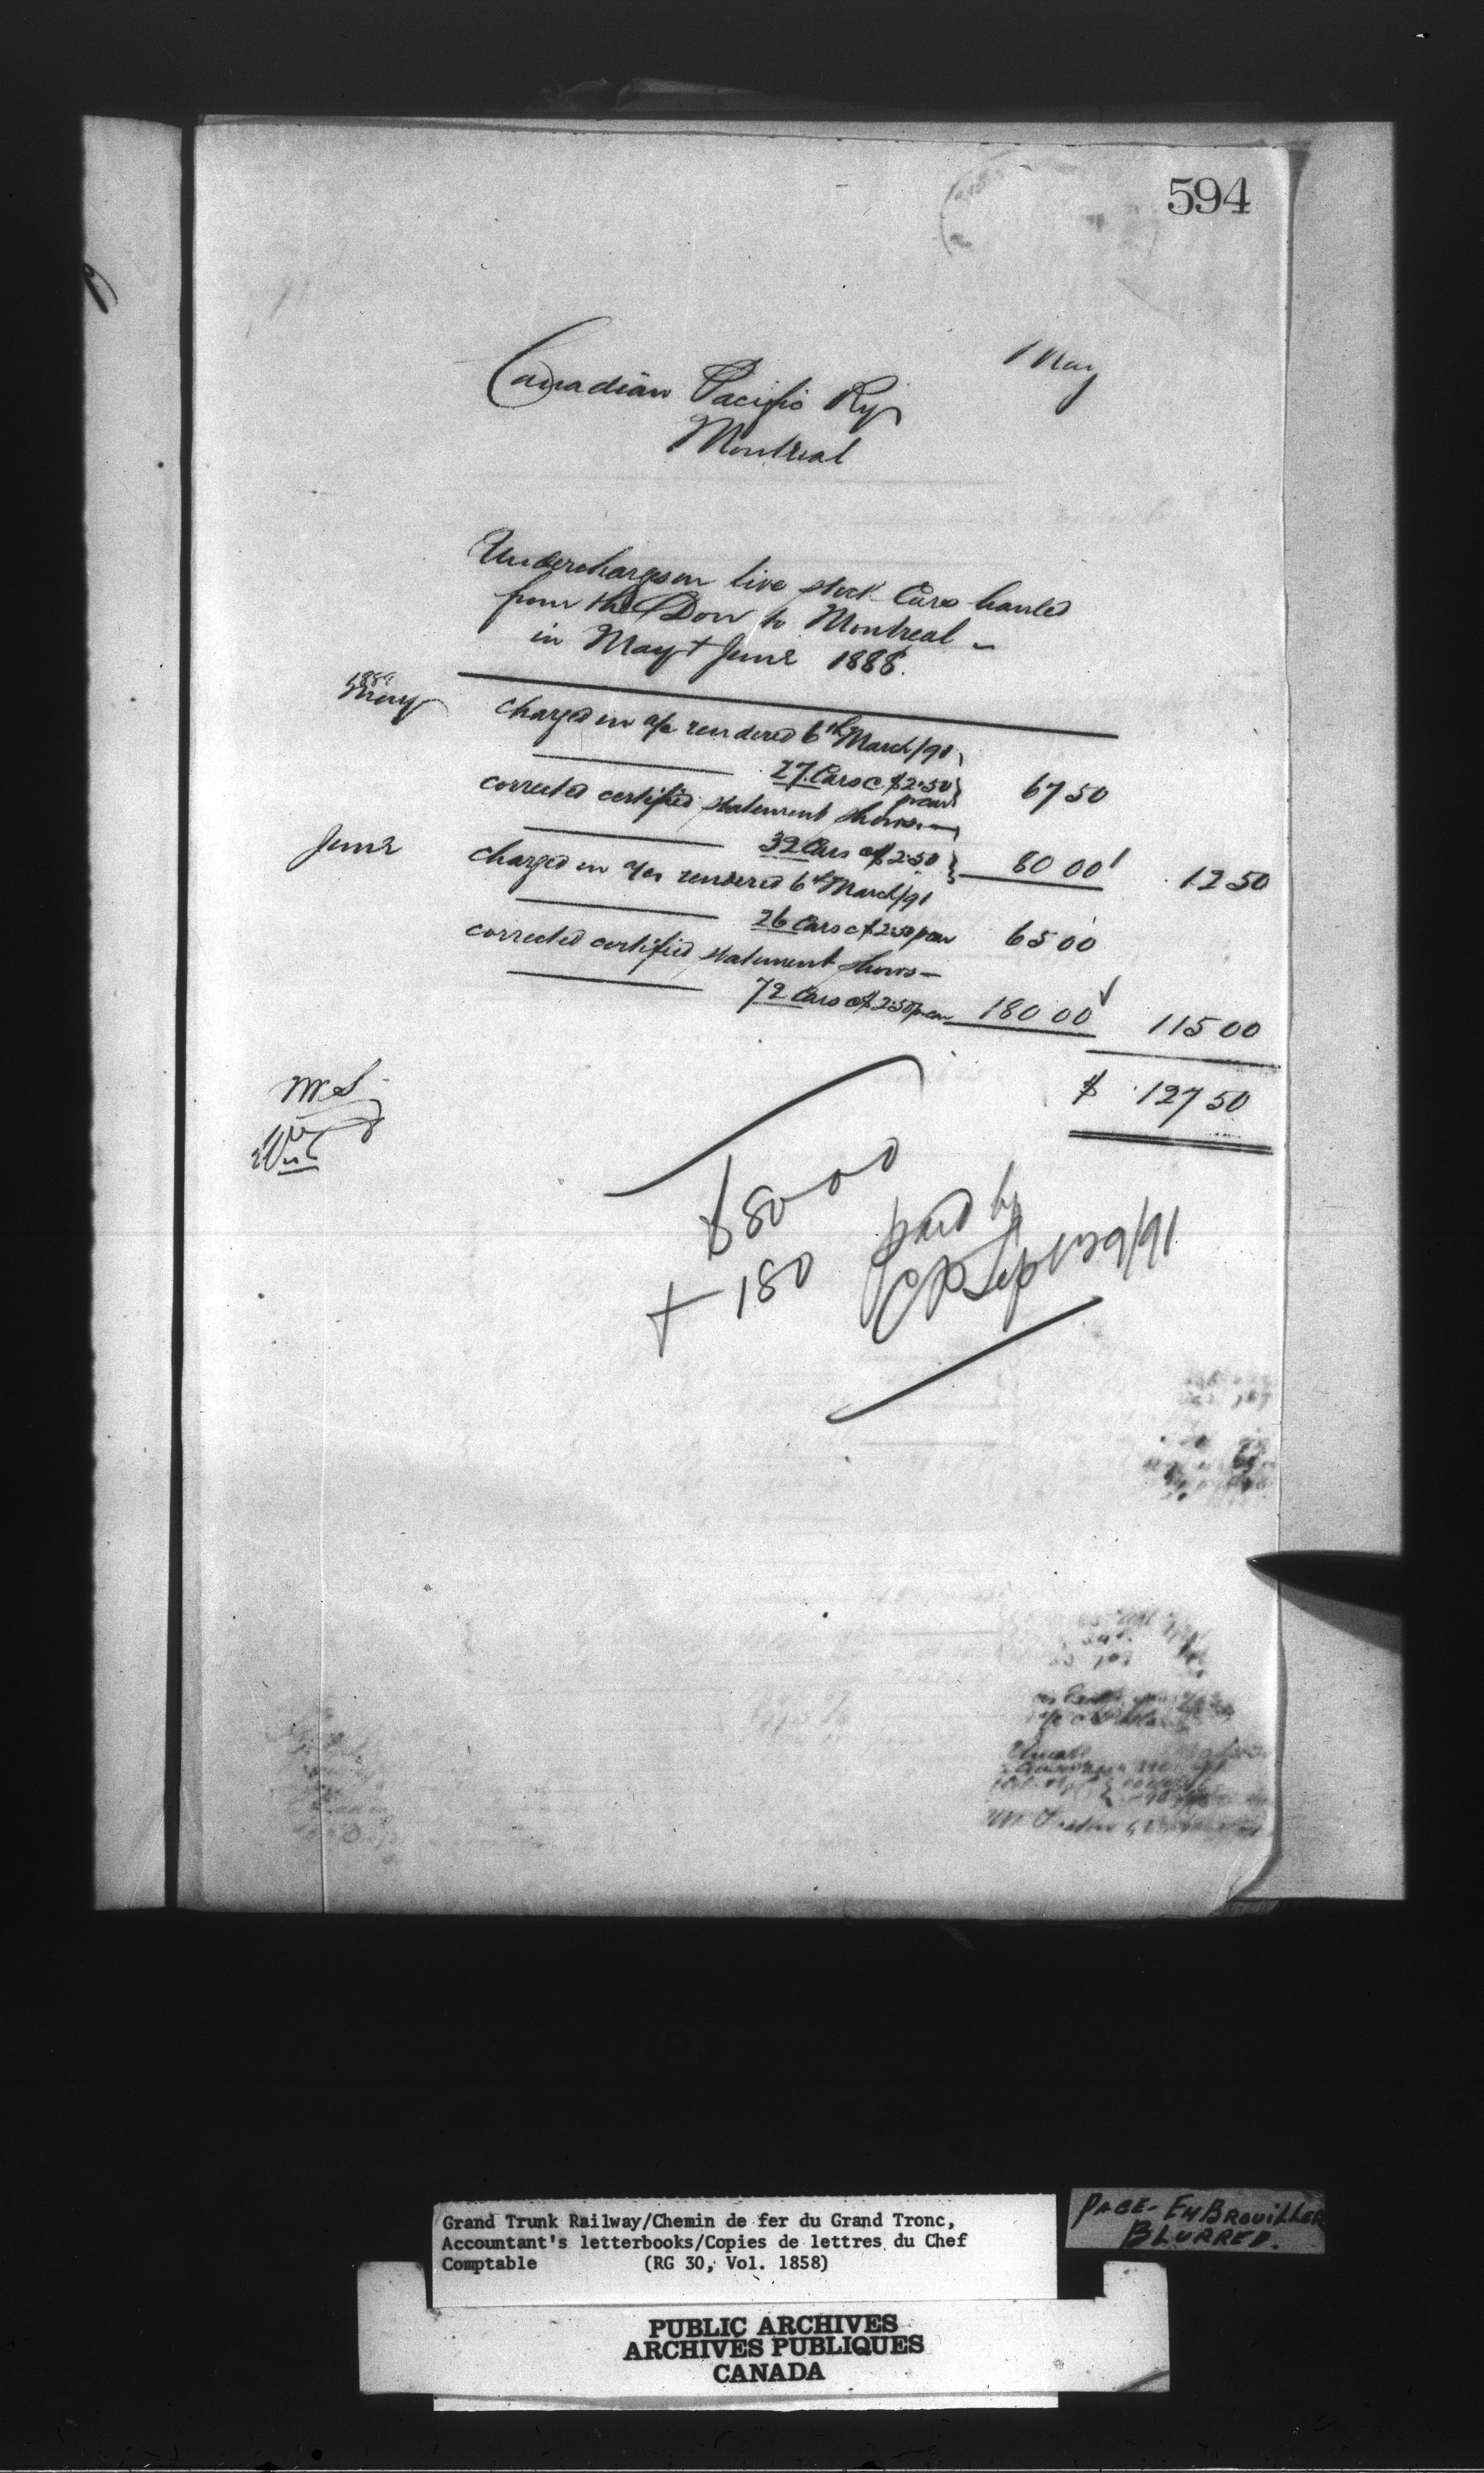 594
May
Canadian Pacific Ry
Montreal
Undercharges on live stock Cars hauled
from the Don to Montreal –
in May & June 1888.
1888
May charged in a/c rendered 6th March/91
27 Cars @ $2.50 p car 67 50
corrected certified statement shows —
32 Cars @ $2.50 80 00 12 50
June charged in a/c rendered 6th March/91
26 Cars @ $2.50 p car 65 00
corrected certified statement shows —
72 Cars @ $2.50 p car 180 00 115 00
$ 127 50
$80.00
+ 180 paid by
Grand Trunk Railway/Chemin de fer du Grand Tronc,
Accountant's letterbooks/Copies de lettres du Chef
Comptable (RG 30, Vol. 1858)
PAGE - EMBROUILLER
BLURRED.
PUBLIC ARCHIVES
ARCHIVES PUBLIQUES
CANADA